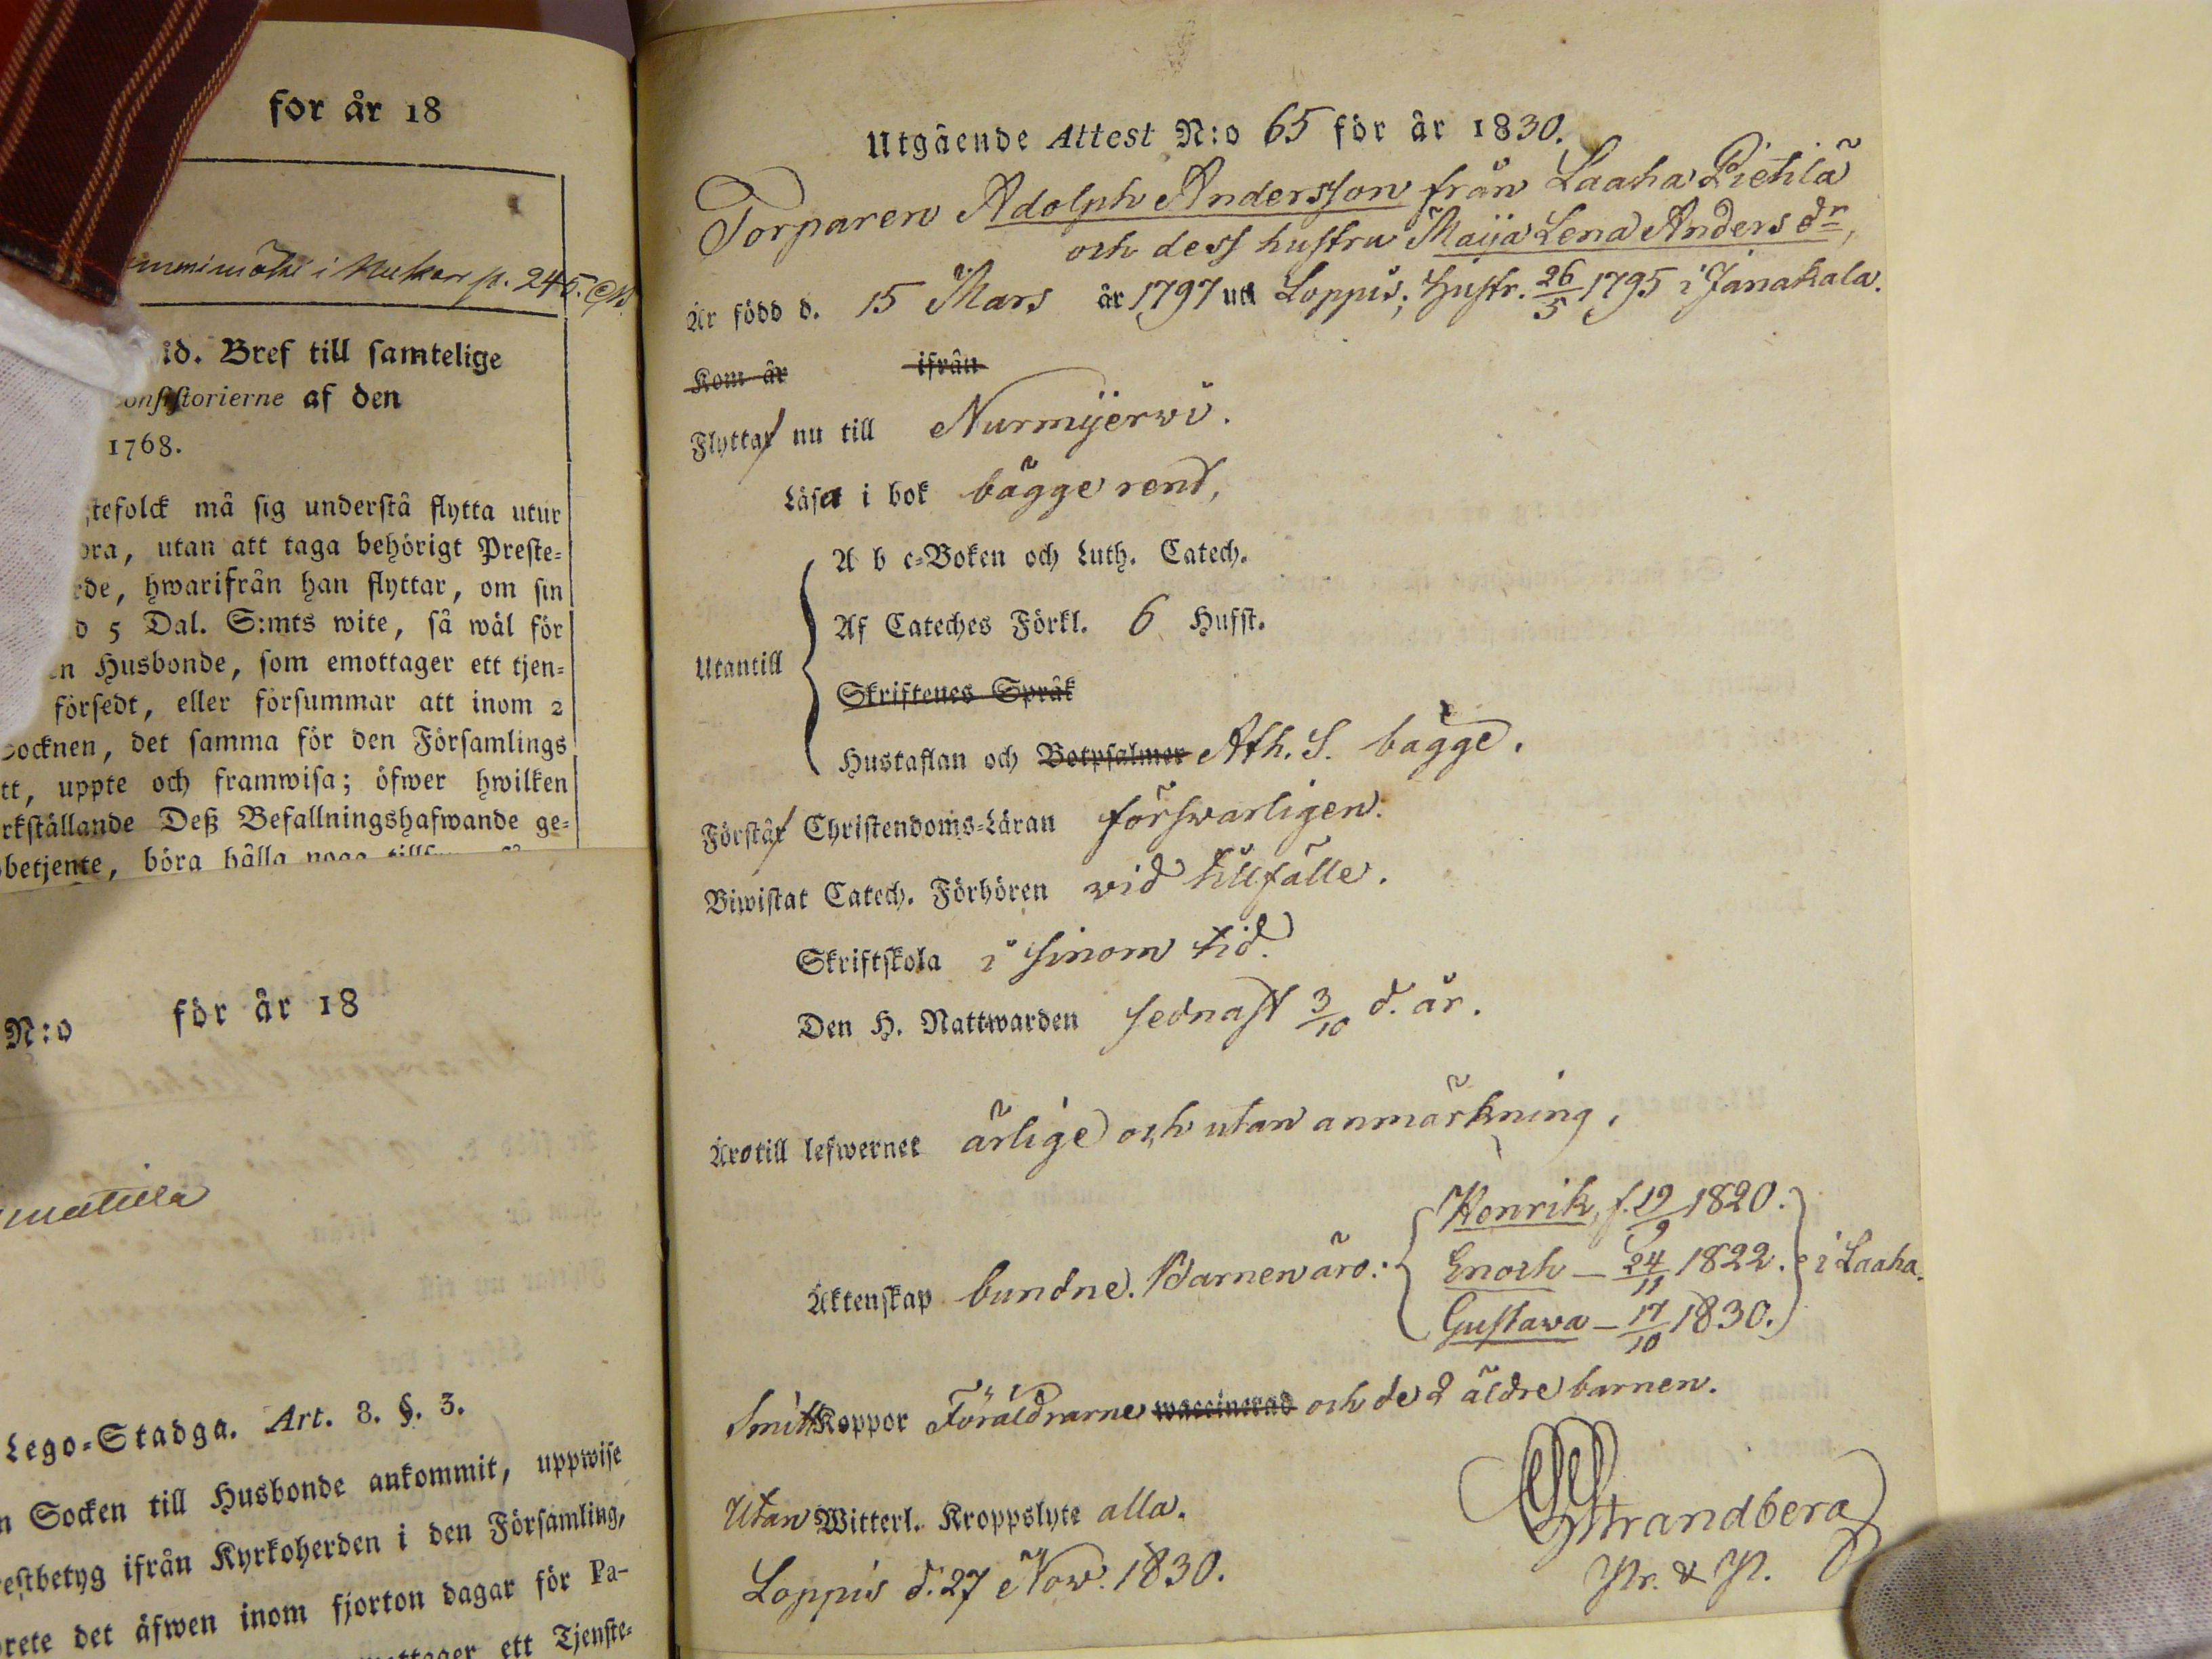 for år 18
i Nuckar p. 245.
id. Bref till samtelige
onsistorierne af den
1768.
stefolck må sig understå flytta utur
ora, utan att taga behörigt Preste-
rde, hwarifrån han flyttar, om sin
d 5 Dal. S:mts wite, så wäl för
en Husbonde, som emottager ett tjen-
försedt, eller försummar att inom 2
Socknen, det samma för den Församlings
tt, uppte och framwisa; öfwer hwilken
rkställande Deß Befallningshafwande ge-
betjente, böra hålla noga
N:o för år 18
Lego-Stadga. Art. 8. §. 3.
n Socken till Husbonde ankommit, uppwise
restbetyg ifrån Kyrkoherden i den Församling,
rete det äfwen inom fjorton dagar för Pa-
ett Tjenste-
Utgående Attest N:o 65 för år 1830.
Torparen Adolph Andersson från Laaha Pietilä
och dess hustru Maija Lena Anders dr,
Är född d. 15 Mars år 1797 uti Loppis; Hustr. 26/5 1795 i Janakala.
Kom år ifrån
Flytta nu till Nurmijerwi.
Läsa i bok bägge rent,
A b c-Boken och Luth. Catech.
Af Cateches Förkl. 6 Hufst.
Utantill
Skriftenes Språk
Hustaflan och Botpsalmer Ath. S. bägge.
Förstå Christendoms-Läran förswarligen.
Biwistat Catech. Förhören wid tillfälle.
Skriftskola i sinom tid.
Den H. Nattwarden sednast 3/10 d. år.
Äro till lefwernet ärlige och utan anmärkning.
Henrik, f. 19/9 1820.
Äktenskap bundne. Barnen äro: Enoch - 24/11 1822. i Laaha.
Gustawa - 17/10 1830.
Smitt Koppor Föräldrarne waccinerad och de 2 äldre barnen.
Utan Witterl. Kroppslyte alla.
Strandberg
Loppis d. 27 Now. 1830.
Pr. & P.